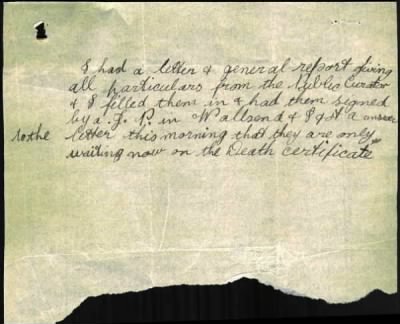 I had a letter & general report giving
all particulars from the Public Curator
& I filled them in & had them signed
by a J. P. in Wallsend & I got a answer
to the letter this morning that they are only
waiting now on the Death certificate